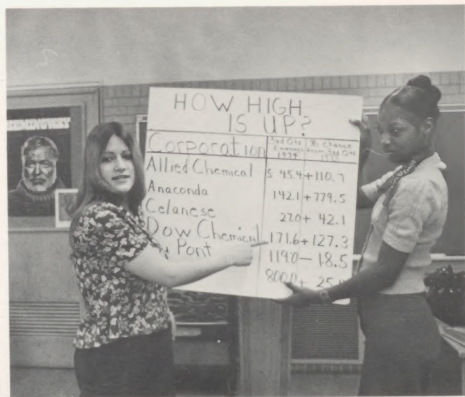 HOW HIGH
IS UP?
Corporation 3rd Qtr. % Change
1974
Allied Chemical $ 45.4 + 110.7
Anaconda 142.1 + 779.5
Celanese 27.0 + 42.1
Dow Chemical 171.6 + 127.3
Pont 119.0 - 18.5
800.0 +